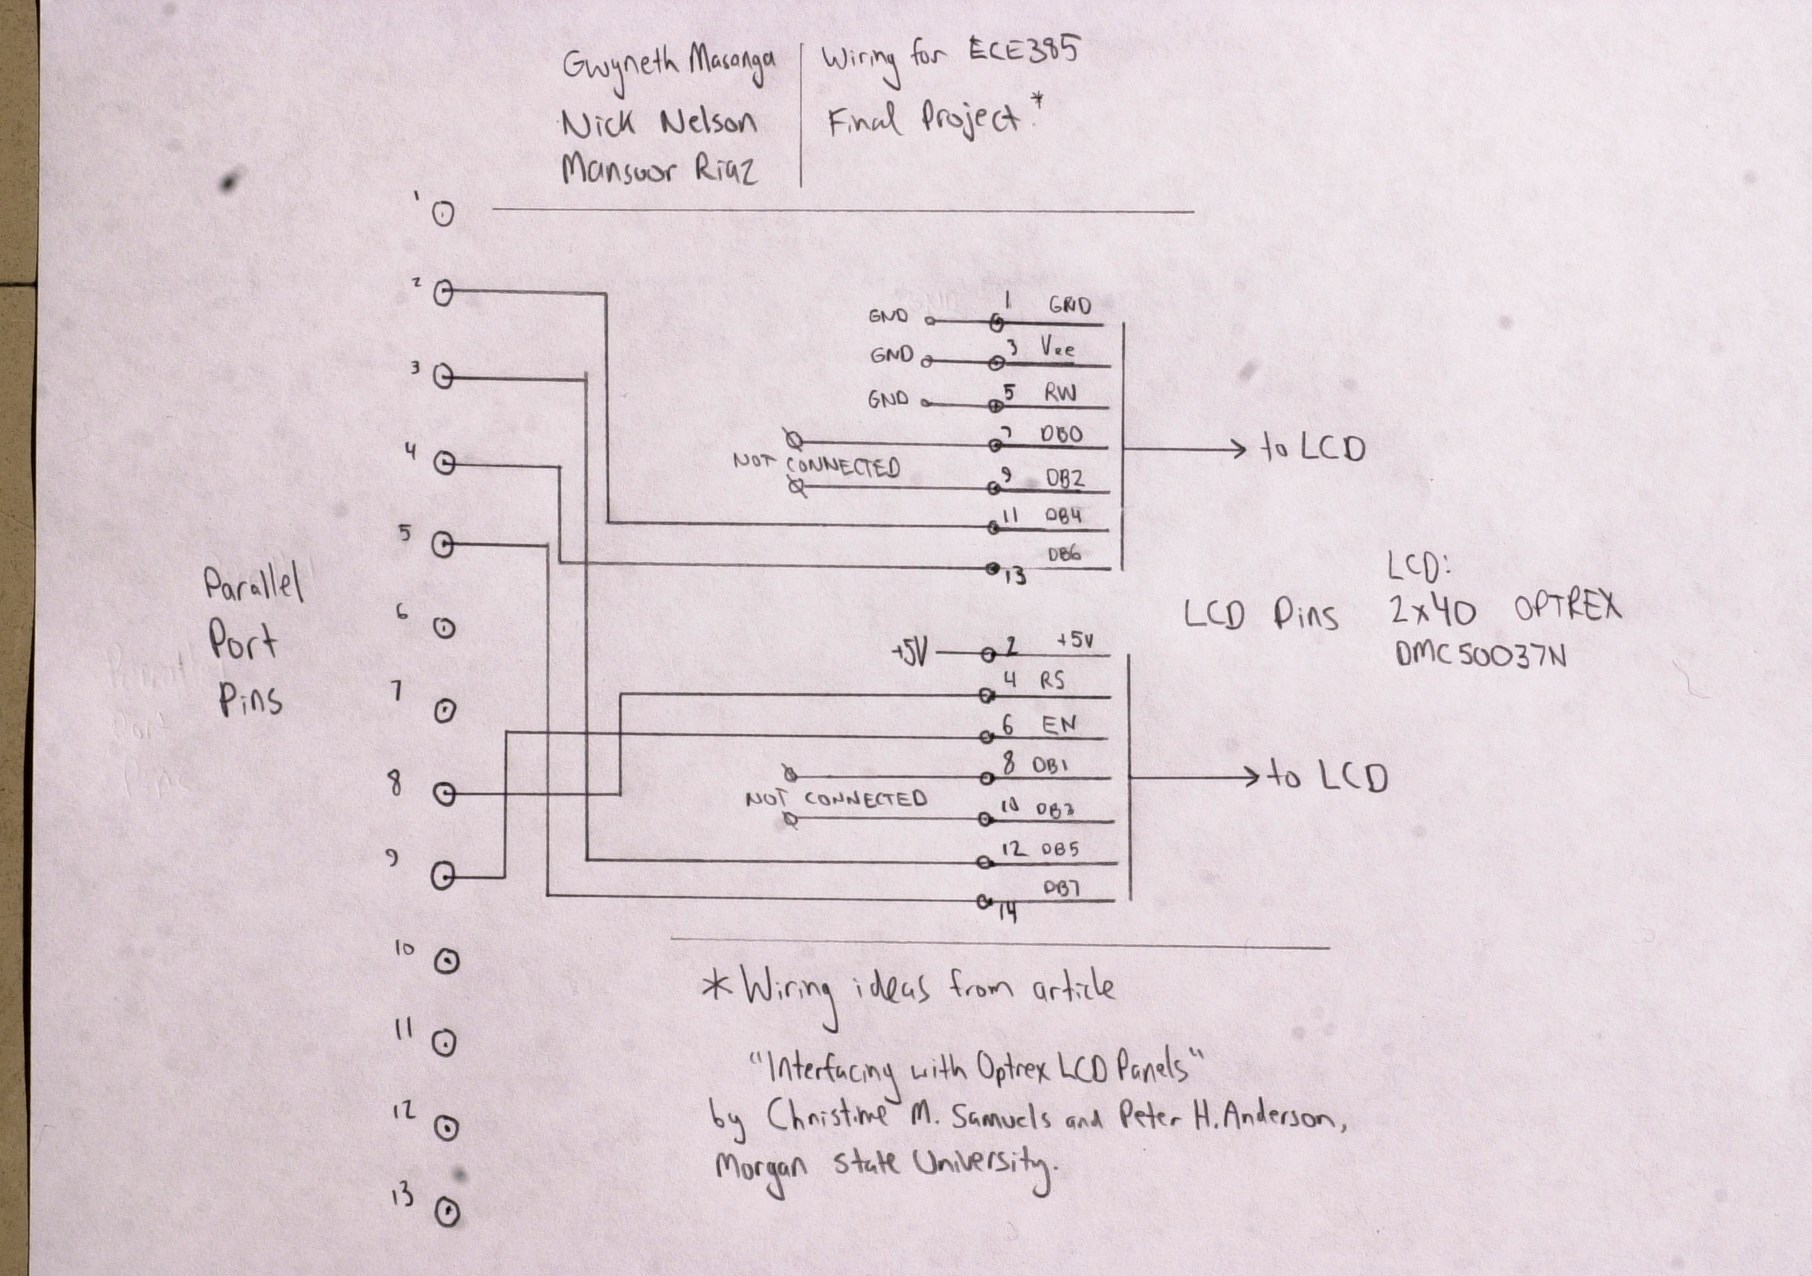 Gwyneth Masanga
Nick Nelson
Mansoor Riaz
Wiring for ECE385
Final Project.*
1
2
3
4
5
6
7
8
9
10
11
12
13
Parallel
Port
Pins
GND 1 GND
GND 3 Vee
GND 5 RW
7 DB0
NOT CONNECTED
9 DB2
11 DB4
DB6
13
to LCD
LCD Pins
LCD:
2x40 OPTREX
DMC50037N
+5V 2 +5V
4 RS
6 EN
8 DB1
NOT CONNECTED
10 DB3
12 DB5
DB7
14
to LCD
* Wiring ideas from article
"Interfacing with Optrex LCD Panels"
by Christine M. Samuels and Peter H. Anderson,
Morgan State University.